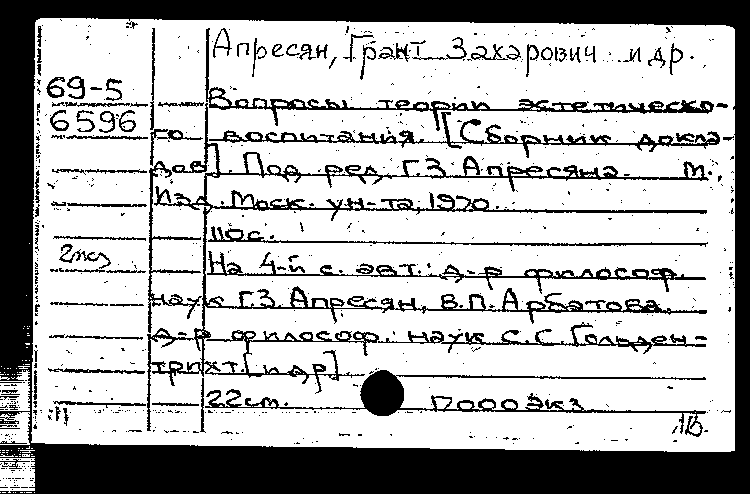 Апресян, Грант Захарович и др.
69-5
6596
Вопросы теории эстетическо-
го воспитания. [Сборник докла-
дов]. Под ред. Г.З. Апресяна. М.,
Изд. Моск. ун-та, 1970.
110с.
2экз
На 4-й с. авт.: д-р философ.
наук Г.З. Апресян, В.П. Арбатова,
д-р философ. наук С.С. Гольден-
трихт [и др]
22см. 17000экз